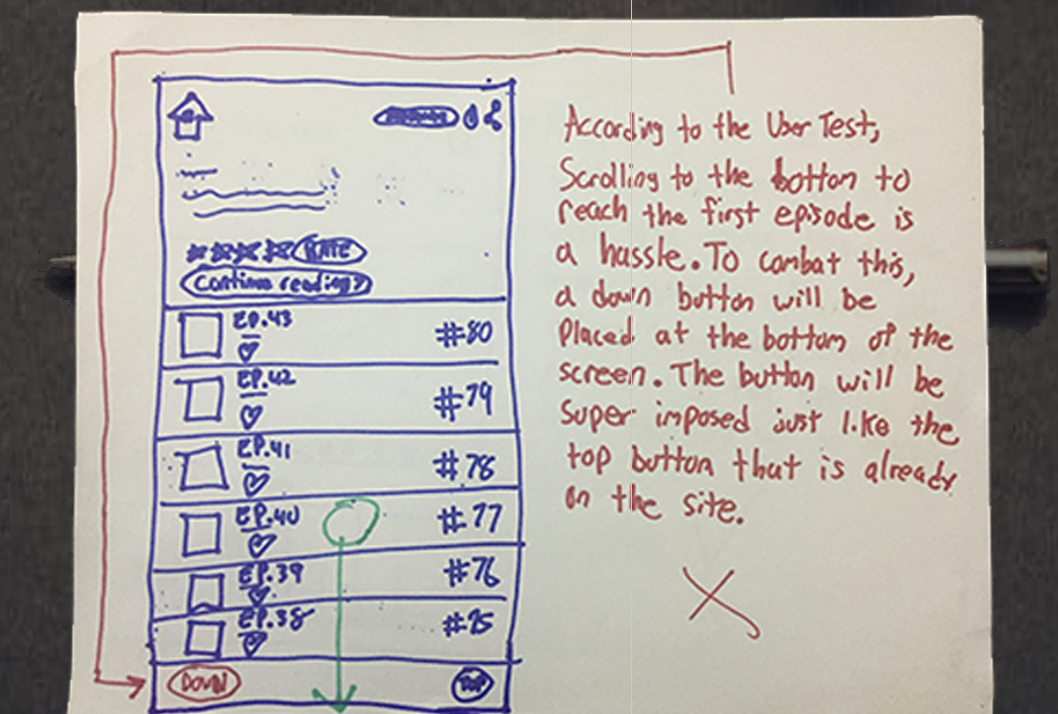 RATE
Continue reading>
EP.43
#80
EP.42
#79
EP.41
#78
EP.40
#77
EP.39
#76
EP.38
#75
DOWN
TOP
According to the User Test,
Scrolling to the bottom to
reach the first episode is
a hassle. To combat this,
a down button will be
Placed at the bottom of the
screen. The button will be
Super imposed just like the
top button that is already
on the site.